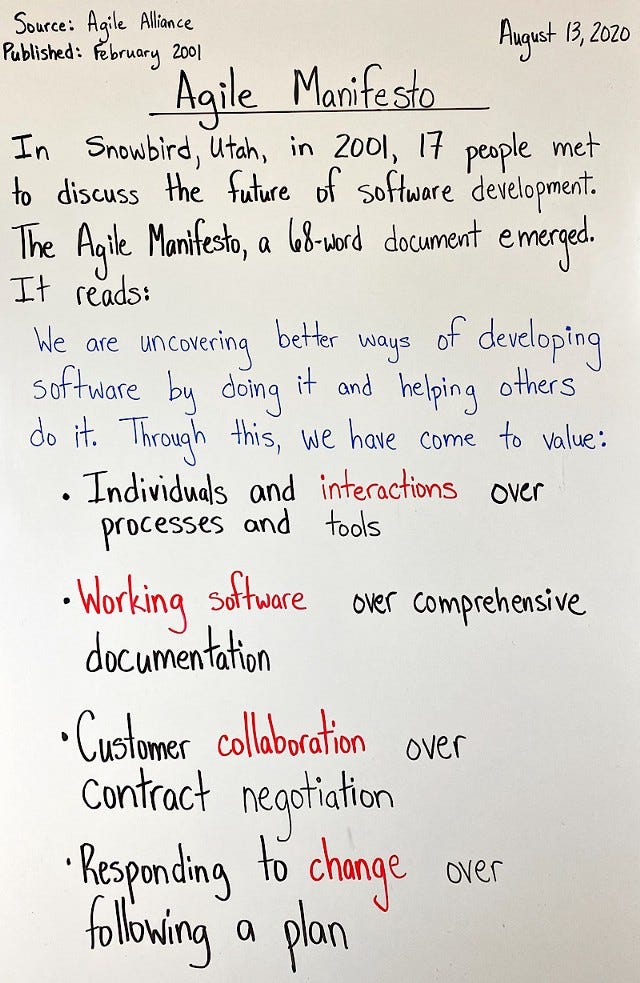 Source: Agile Alliance
Published: February 2001
August 13, 2020
Agile Manifesto
In Snowbird, Utah, in 2001, 17 people met
to discuss the future of software development.
The Agile Manifesto, a 68-word document emerged.
It reads:
We are uncovering better ways of developing
software by doing it and helping others
do it. Through this, we have come to value:
• Individuals and interactions over
processes and tools
• Working software over comprehensive
documentation
• Customer collaboration over
contract negotiation
• Responding to change over
following a plan